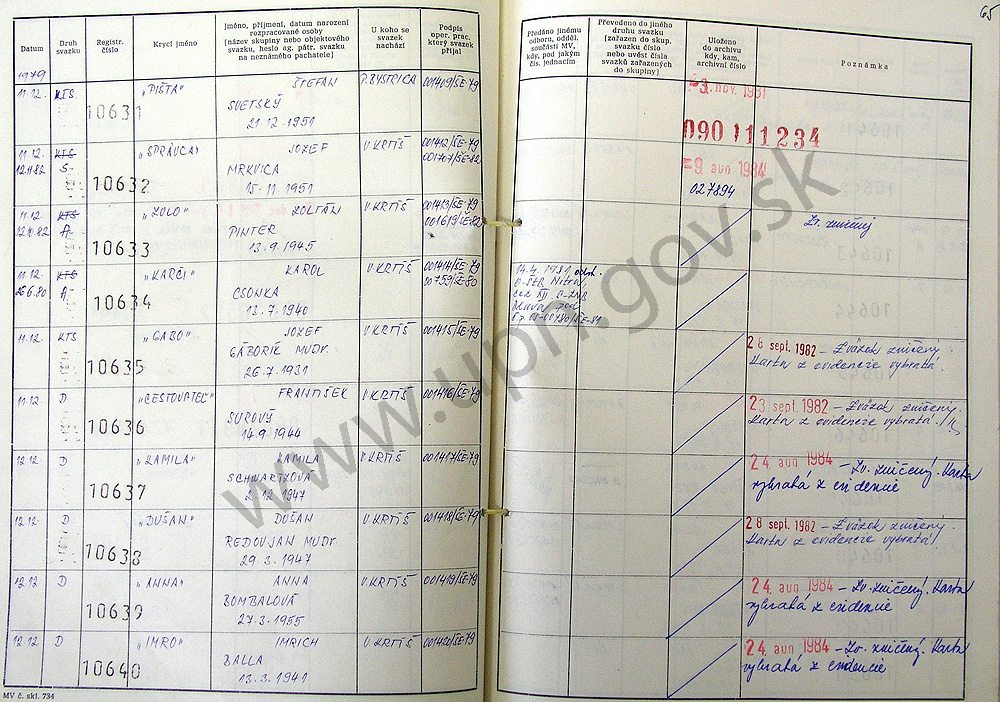 65
Datum
Druh svazku
Registr. číslo
Krycí jméno
Jméno, příjmení, datum narození rozpracované osoby (název skupiny nebo objektového svazku, heslo ag. pátr. svazku na neznámého pachatele)
U koho se svazek nachází
Podpis oper. prac. který svazek přijal
Předáno jinému odboru, odděl. součásti MV, kdy, pod jakým čís. jednacím
Převedeno do jiného druhu svazku (zařazen do skup. svazku číslo nebo uvést čísla svazků zařazených do skupiny)
Uloženo do archivu kdy, kam, archivní číslo
Poznámka
1979
11.12. KTS 10631 "PIŠTA" ŠTEFAN P. BYSTRICA 001409/ŠE-79
SVETSKÝ
21.12.1951
-3. nov. 1981
090 111234
11.12. KTS 10632 "SPRÁVCA" JOZEF V. KRTÍŠ 001412/ŠE-79
S- MRKVICA 001707/ŠE-82
15.11.1951
-9. aug 1984
027894
11.12. KTS 10633 "ZOLO" ZOLTÁN V. KRTÍŠ 001413/ŠE-79
A- PINTER 001619/ŠE-82
13.9.1945
Zv. zničený
11.12. KTS 10634 "KARČI" KAROL V. KRTÍŠ 001414/ŠE-79
26.6.80 A- CSONKA 00759/ŠE-80
13.7.1940
14.4.1981
11.12. KTS 10635 "GABO" JOZEF V. KRTÍŠ 001415/ŠE-79
GÁBORÍK MUDr.
26.7.1931
28 sept. 1982 – Zväzok zničený.
Karta z evidencie vybratá.
11.12. D 10636 "CESTOVATEĽ" FRANTIŠEK V. KRTÍŠ 001416/ŠE-79
SUROVÝ
14.9.1944
23 sept. 1982 – Zväzok zničený.
Karta z evidencie vybratá.
12.12. D 10637 "KAMILA" KAMILA V. KRTÍŠ 001417/ŠE-79
SCHWARTZOVÁ
2.12.1947
24 aug 1984 – Zv. zničený. Karta
vybratá z evidencie
12.12. D 10638 "DUŠAN" DUŠAN V. KRTÍŠ 001418/ŠE-79
REDOVJAN MUDr.
29.3.1947
28 sept. 1982 – Zväzok zničený.
Karta z evidencie vybratá
12.12. D 10639 "ANNA" ANNA V. KRTÍŠ 001419/ŠE-79
BOMBALOVÁ
27.3.1955
24. aug 1984 – Zv. zničený. Karta
vybratá z evidencie
12.12. D 10640 "IMRO" IMRICH V. KRTÍŠ 001420/ŠE-79
BALLA
13.3.1941
24 aug 1984 – Zv. zničený. Karta
vybratá z evidencie
MV č. skl. 734
www.upn.gov.sk